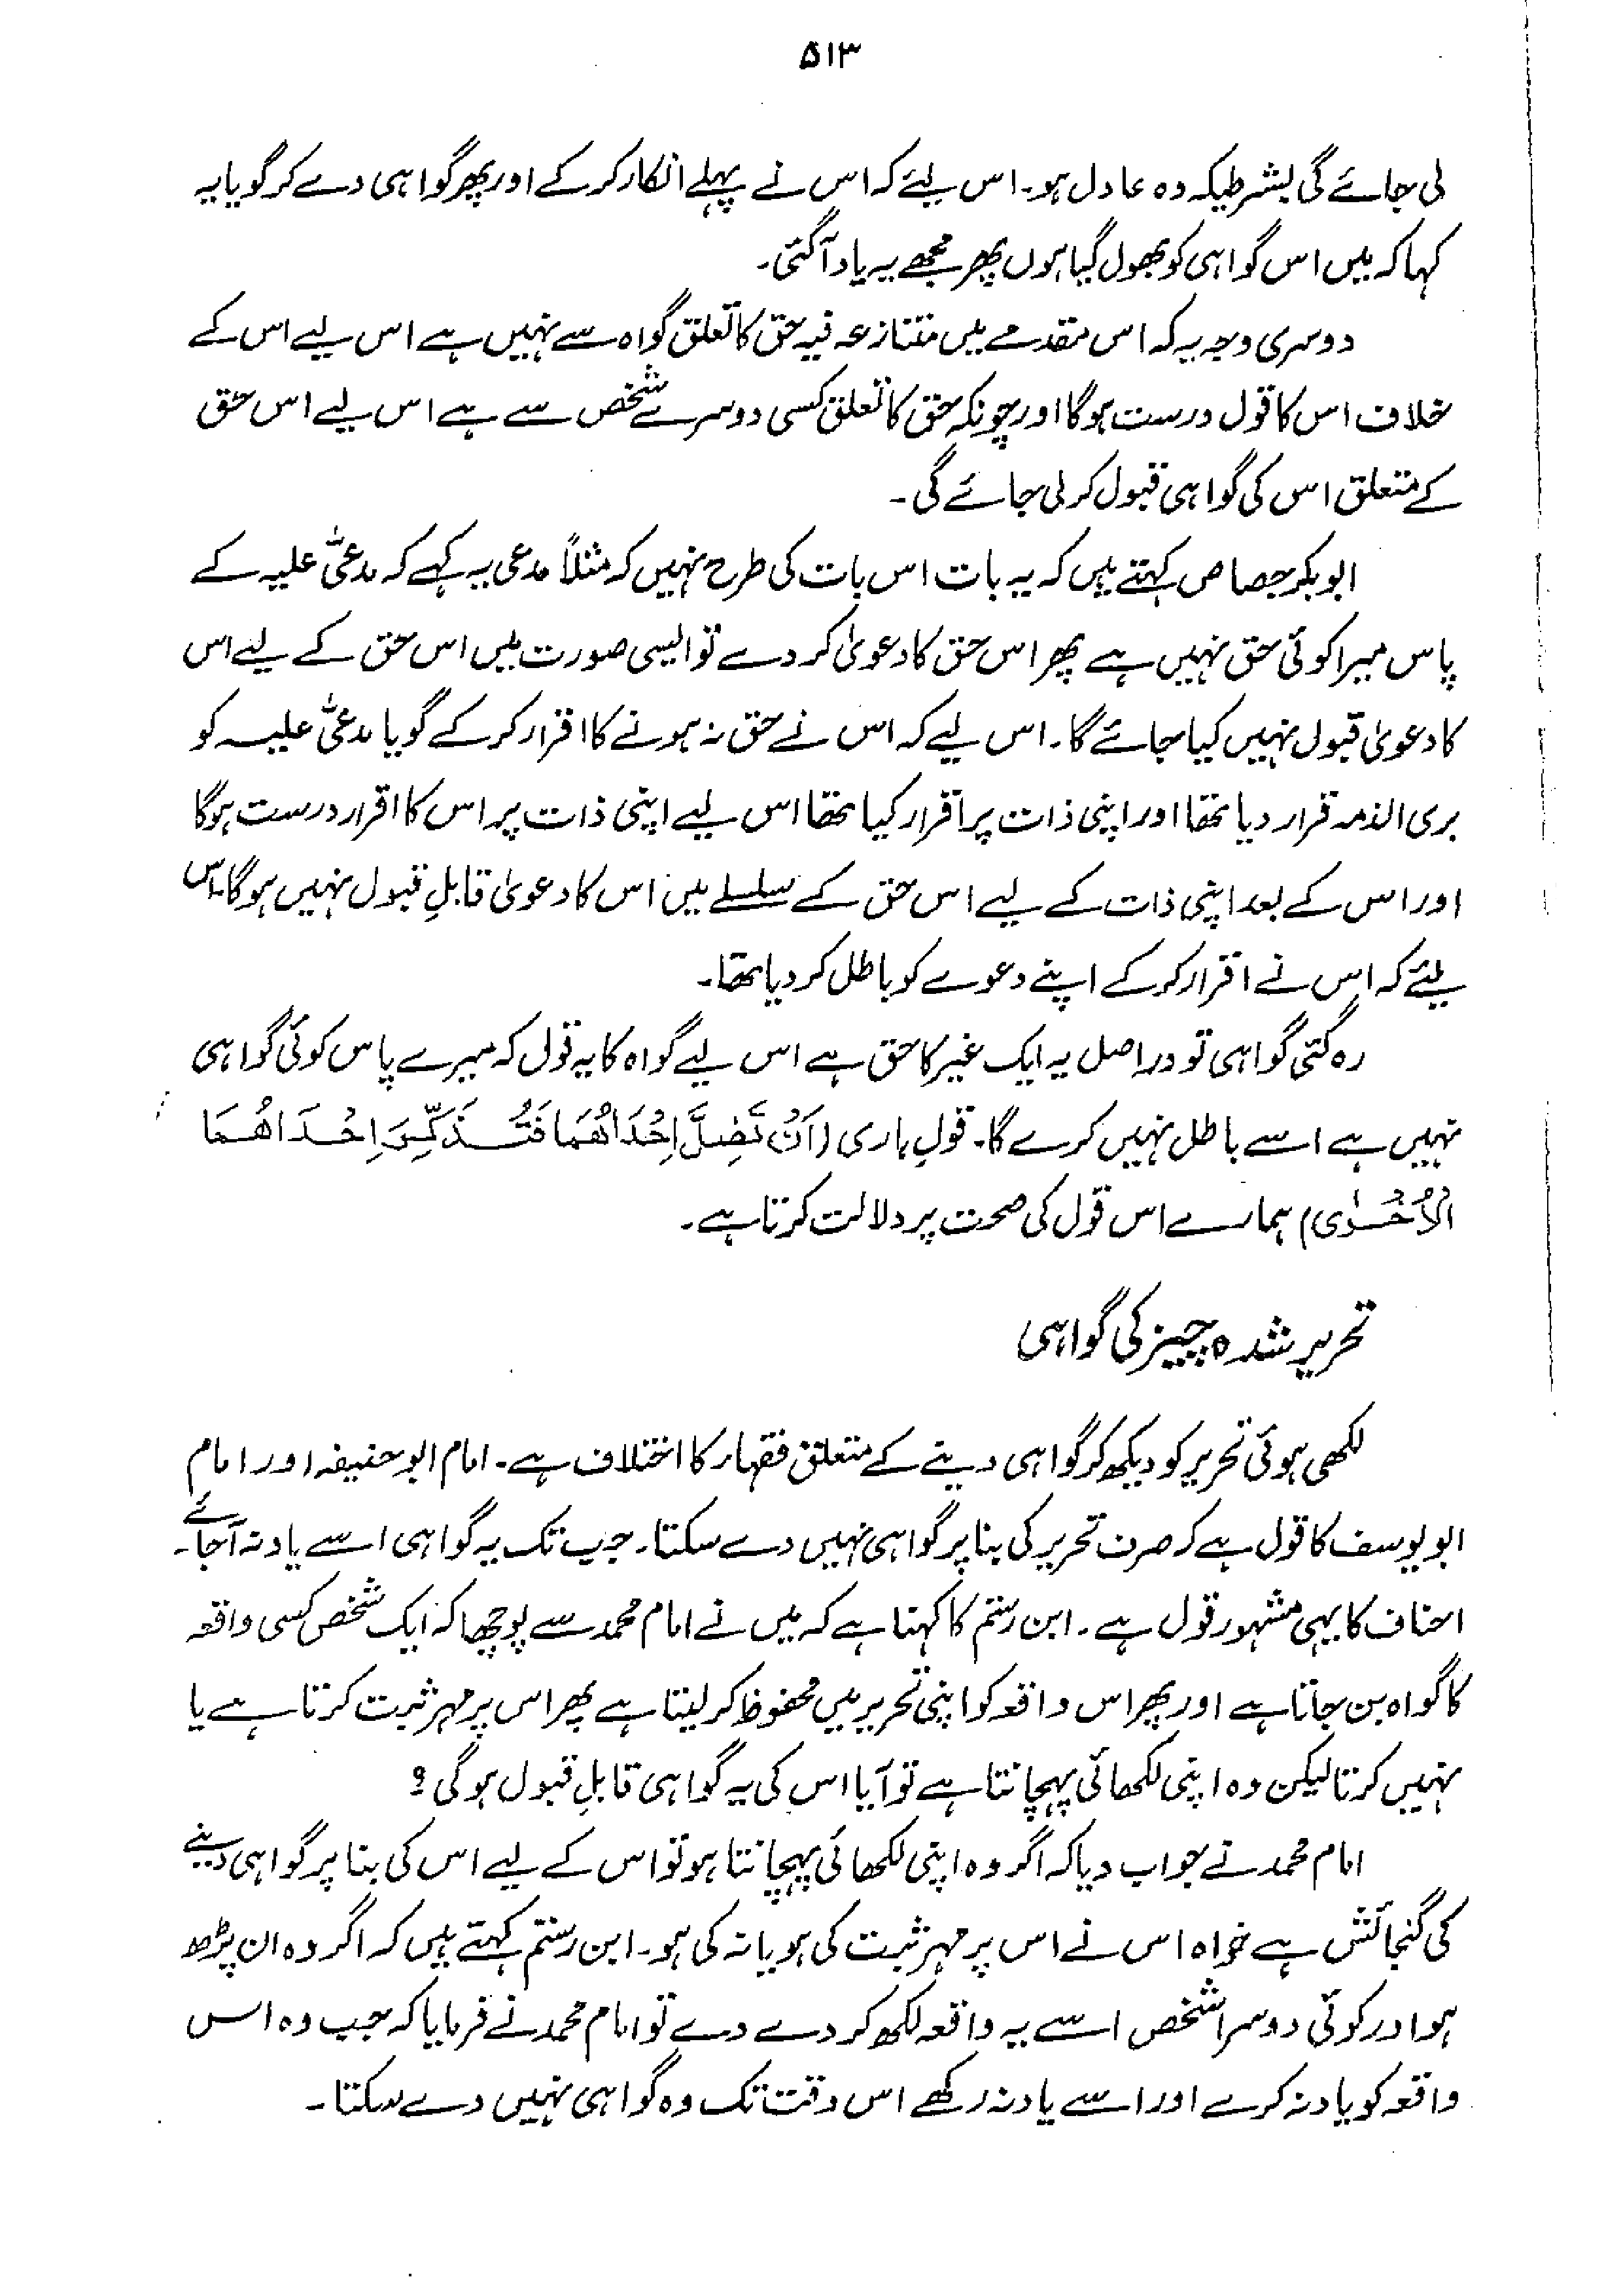 ۵۱۳
لی جائے گی بشرطیکہ وہ عادل ہو۔ اس لئے کہ اس نے پہلے انکار کر کے اور پھر گواہی دے کر گویا یہ
کہا کہ میں اس گواہی کو بھول گیا ہوں پھر مجھے یہ یاد آگئی۔
دوسری وجہ یہ کہ اس مقدمے میں متنازعہ فیہ حق کا تعلق گواہ سے نہیں ہے اس لیے اس کے
خلاف اس کا قول درست ہوگا اور چونکہ حق کا تعلق کسی دوسرے شخص سے ہے اس لیے اس حق
کے متعلق اس کی گواہی قبول کر لی جائے گی۔
ابوبکر جصاص کہتے ہیں کہ یہ بات اس بات کی طرح نہیں کہ مثلاً مدعی یہ کہے کہ مدعیٰ علیہ کے
پاس میرا کوئی حق نہیں ہے پھر اس حق کا دعویٰ کر دے تو ایسی صورت میں اس حق کے لیے اس
کا دعویٰ قبول نہیں کیا جائے گا۔ اس لیے کہ اس نے حق نہ ہونے کا اقرار کر کے گویا مدعیٰ علیہ کو
بری الذمہ قرار دیا تھا اور اپنی ذات پر اقرار کیا تھا اس لیے اپنی ذات پر اس کا اقرار درست ہوگا
اور اس کے بعد اپنی ذات کے لیے اس حق کے سلسلے میں اس کا دعویٰ قابلِ قبول نہیں ہوگا۔ اس
لئے کہ اس نے اقرار کر کے اپنے دعوے کو باطل کر دیا تھا۔
رہ گئی گواہی تو دراصل یہ ایک غیر کا حق ہے اس لیے گواہ کا یہ قول کہ میرے پاس کوئی گواہی
نہیں ہے اسے باطل نہیں کرے گا۔ قولِ باری (اَنْ تَضِلَّ اِحْدَاھُمَا فَتُذَکِّرَ اِحْدَاھُمَا
الْاُخْرٰی) ہمارے اس قول کی صحت پر دلالت کرتا ہے۔
تحریر شدہ چیز کی گواہی
لکھی ہوئی تحریر کو دیکھ کر گواہی دینے کے متعلق فقہاء کا اختلاف ہے۔ امام ابوحنیفہ اور امام
ابویوسف کا قول ہے کہ صرف تحریر کی بنا پر گواہی نہیں دے سکتا۔ جب تک یہ گواہی اسے یاد نہ آجائے۔
احناف کا یہی مشہور قول ہے۔ ابن رستم کا کہنا ہے کہ میں نے امام محمد سے پوچھا کہ ایک شخص کسی واقعہ
کا گواہ بن جاتا ہے اور پھر اس واقعہ کو اپنی تحریر میں محفوظ کر لیتا ہے پھر اس پر مہر ثبت کرتا ہے یا
نہیں کرتا لیکن وہ اپنی لکھائی پہچانتا ہے تو آیا اس کی یہ گواہی قابلِ قبول ہوگی؟
امام محمد نے جواب دیا کہ اگر وہ اپنی لکھائی پہچانتا ہو تو اس کے لیے اس کی بنا پر گواہی دینے
کی گنجائش ہے خواہ اس نے اس پر مہر ثبت کی ہو یا نہ کی ہو۔ ابن رستم کہتے ہیں کہ اگر وہ ان پڑھ
ہو اور کوئی دوسرا شخص اسے یہ واقعہ لکھ کر دے دے تو امام محمد نے فرمایا کہ جب وہ اس
واقعہ کو یاد نہ کرے اور اسے یاد نہ رکھے اس وقت تک وہ گواہی نہیں دے سکتا۔